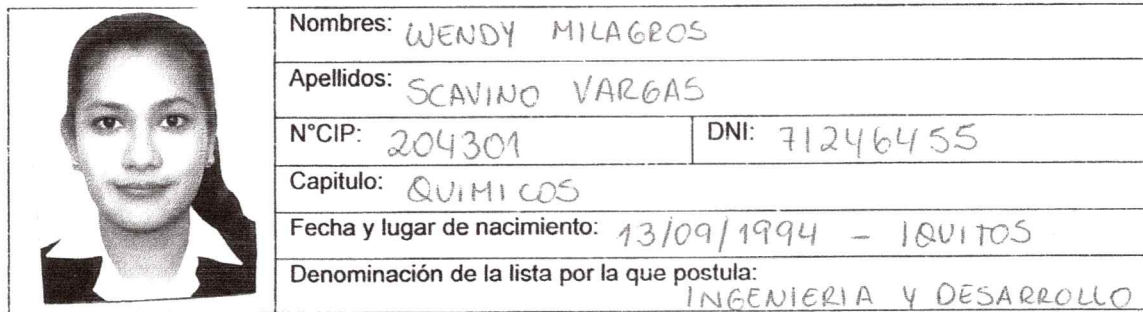 Nombres: WENDY MILAGROS
Apellidos: SCAVINO VARGAS
N°CIP: 204301 DNI: 71246455
Capitulo: QUIMICOS
Fecha y lugar de nacimiento: 13/09/1994 - IQUITOS
Denominación de la lista por la que postula:
INGENIERIA Y DESARROLLO